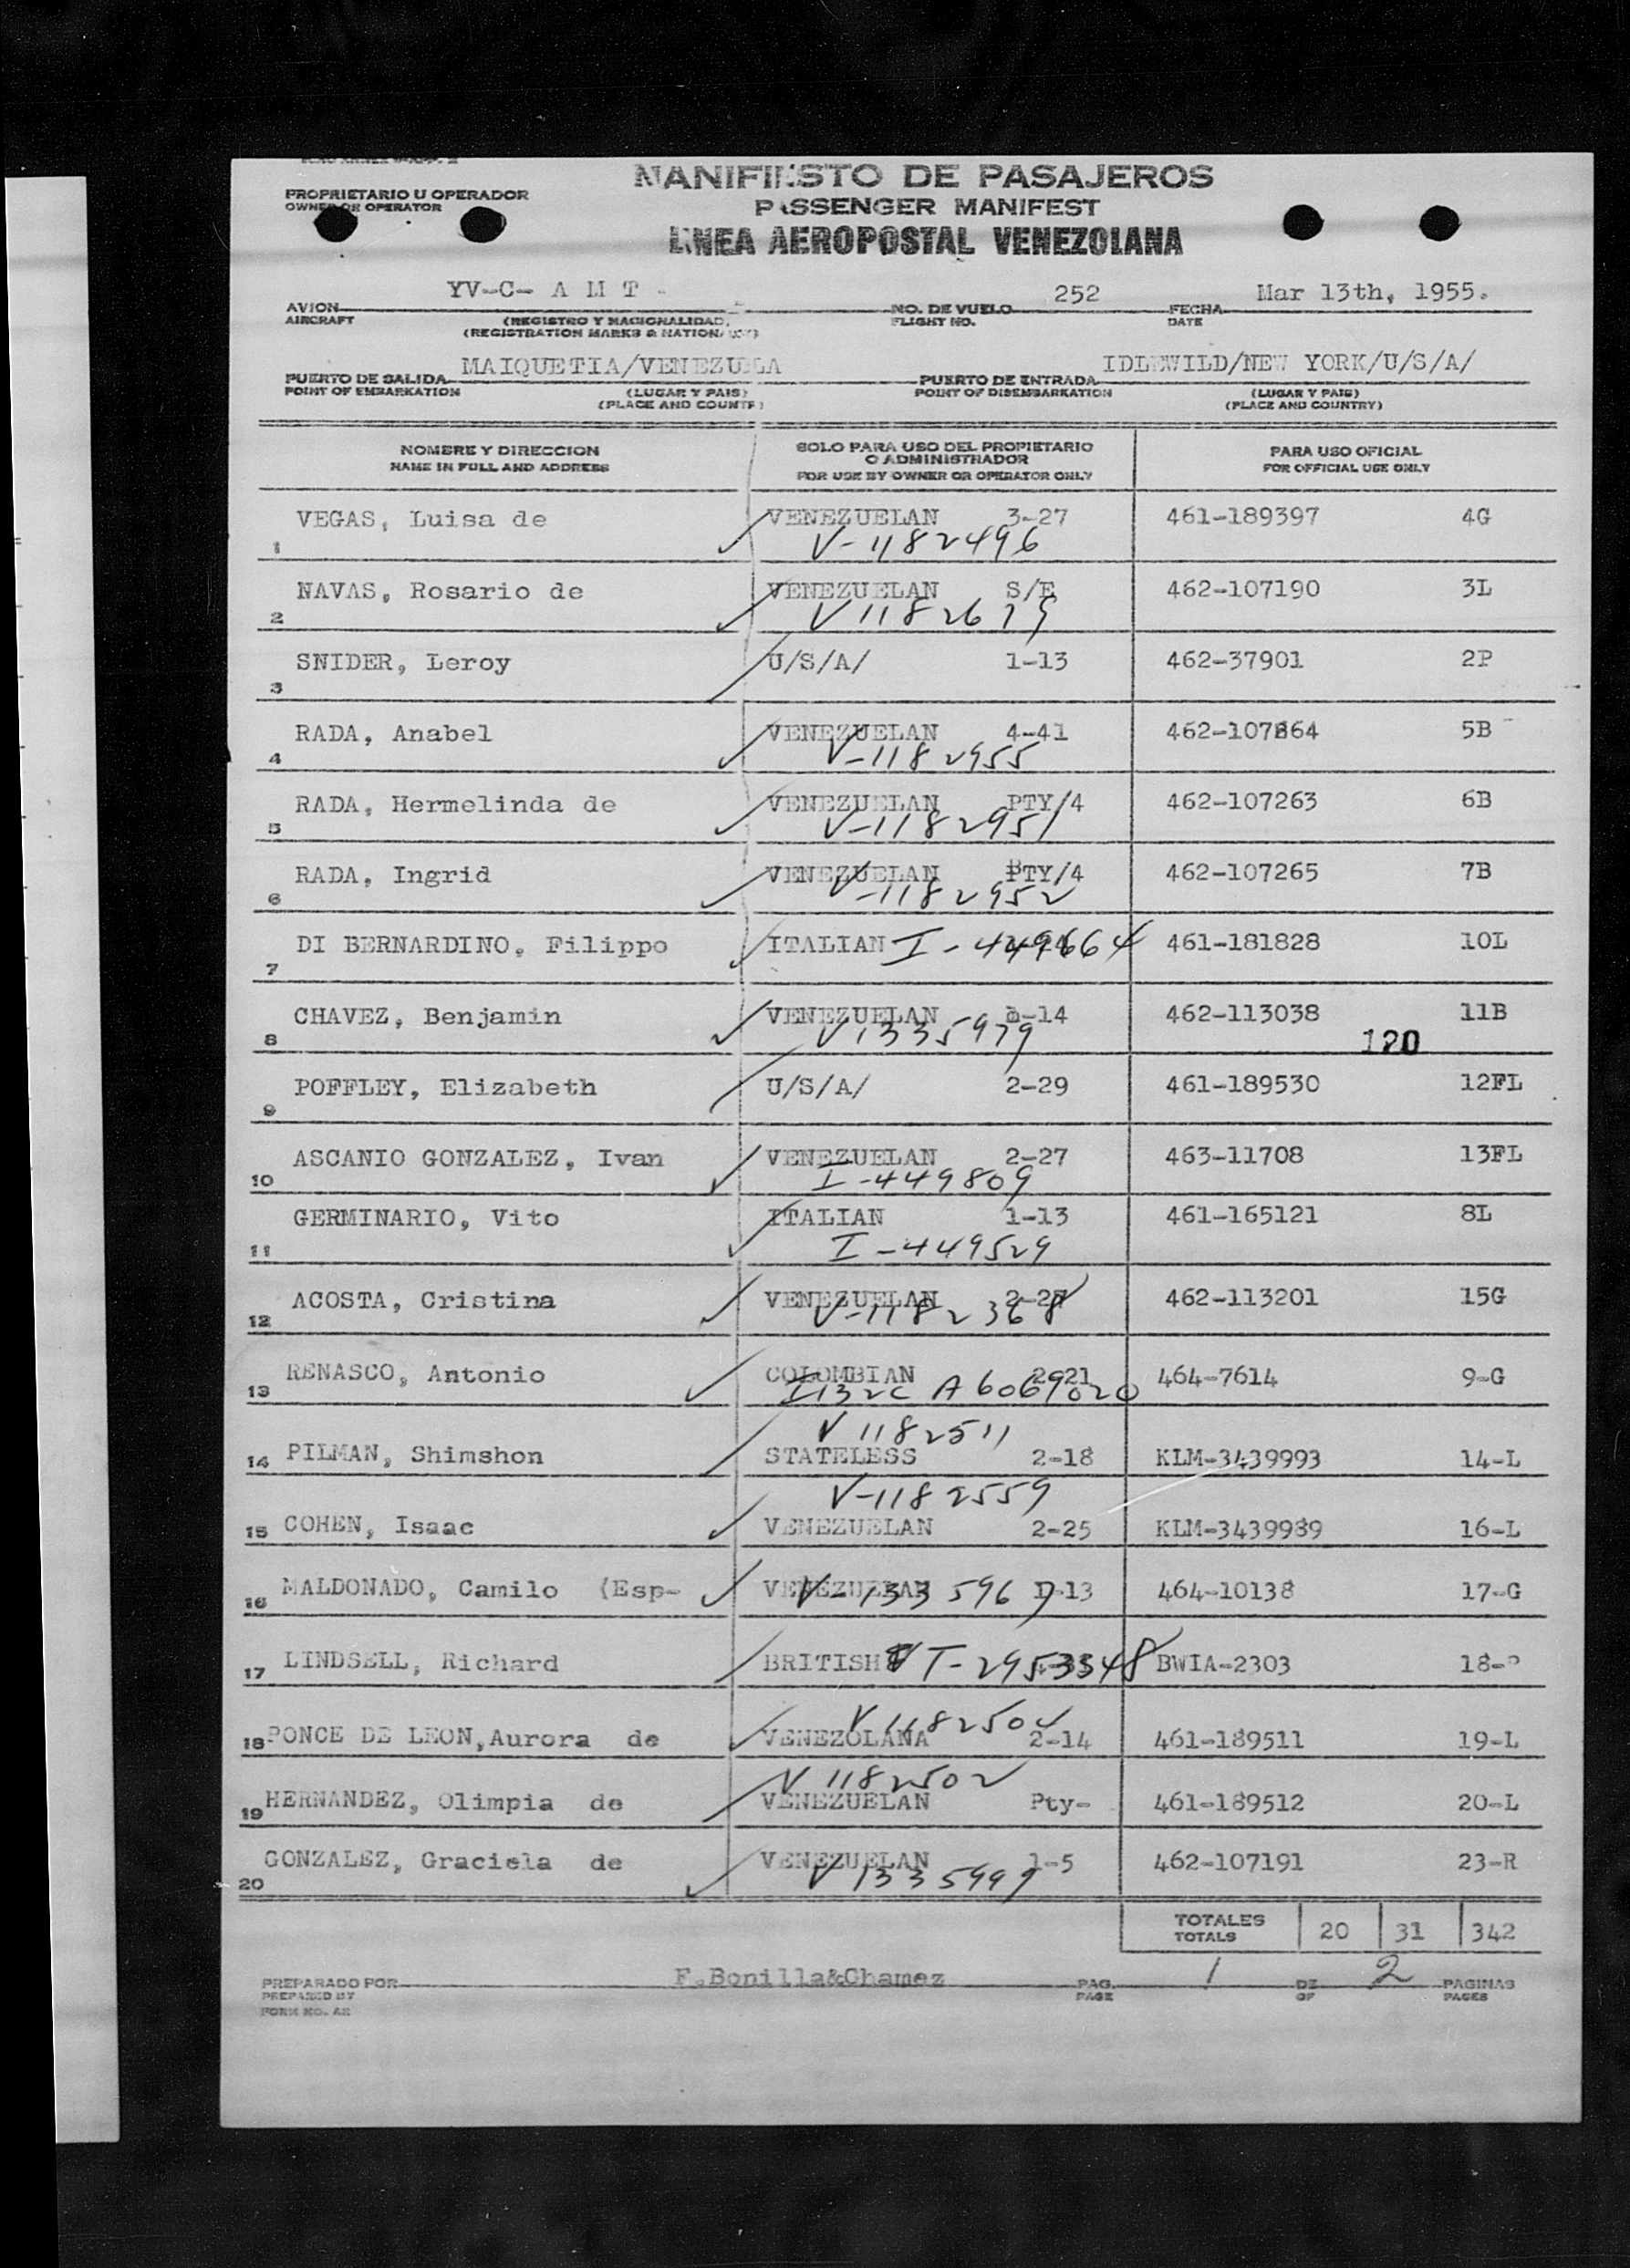 MANIFIESTO DE PASAJEROS
PROPRIETARIO U OPERADOR
OWNER OR OPERATOR
PASSENGER MANIFEST
LINEA AEROPOSTAL VENEZOLANA
YV-C- A M T - 252 Mar 13th, 1955.
AVION NO. DE VUELO FECHA
AIRCRAFT (REGISTRO Y NACIONALIDAD) FLIGHT NO. DATE
(REGISTRATION MARKS & NATIONALITY)
MAIQUETIA/VENEZUELA IDLEWILD/NEW YORK/U/S/A/
PUERTO DE SALIDA PUERTO DE ENTRADA
POINT OF EMBARKATION (LUGAR Y PAIS) POINT OF DISEMBARKATION (LUGAR Y PAIS)
(PLACE AND COUNTRY) (PLACE AND COUNTRY)
NOMBRE Y DIRECCION SOLO PARA USO DEL PROPIETARIO PARA USO OFICIAL
NAME IN FULL AND ADDRESS O ADMINISTRADOR FOR OFFICIAL USE ONLY
FOR USE BY OWNER OR OPERATOR ONLY
VEGAS, Luisa de VENEZUELAN 3-27 461-189397 4G
1 V-1182496
NAVAS, Rosario de VENEZUELAN S/E 462-107190 3L
2 V1182679
SNIDER, Leroy U/S/A/ 1-13 462-37901 2P
3
RADA, Anabel VENEZUELAN 4-41 462-107264 5B
4 V-1182955
RADA, Hermelinda de VENEZUELAN PTY/4 462-107263 6B
5 V-1182951
RADA, Ingrid VENEZUELAN PTY/4 462-107265 7B
6 V-1182952
DI BERNARDINO, Filippo ITALIAN I-449664 461-181828 10L
7
CHAVEZ, Benjamin VENEZUELAN -14 462-113038 11B
8 V1335979 120
POFFLEY, Elizabeth U/S/A/ 2-29 461-189530 12FL
9
ASCANIO GONZALEZ, Ivan VENEZUELAN 2-27 463-11708 13FL
10 I-449809
GERMINARIO, Vito ITALIAN 1-13 461-165121 8L
11 I-449529
ACOSTA, Cristina VENEZUELAN 2-27 462-113201 15G
12 V-1182368
RENASCO, Antonio COLOMBIAN 2-21 464-7614 9-G
13 I132C A6069020
V 1182511
14 PILMAN, Shimshon STATELESS 2-18 KLM-3439993 14-L
V-1182559
15 COHEN, Isaac VENEZUELAN 2-25 KLM-3439989 16-L
16 MALDONADO, Camilo (Esp- VENEZUELAN V-1335967 -13 464-10138 17-G
17 LINDSELL, Richard BRITISH VT-2953348 BWIA-2303 18-P
V 1182504
18 PONCE DE LEON, Aurora de VENEZOLANA 2-14 461-189511 19-L
V 1182502
19 HERNANDEZ, Olimpia de VENEZUELAN Pty- 461-189512 20-L
GONZALEZ, Graciela de VENEZUELAN 1-5 462-107191 23-R
20 V1335999
TOTALES
TOTALS 20 31 342
F.Bonilla&Chamez 1 2
PREPARADO POR PAG. DE PAGINAS
PREPARED BY PAGE OF PAGES
FORM NO. AE